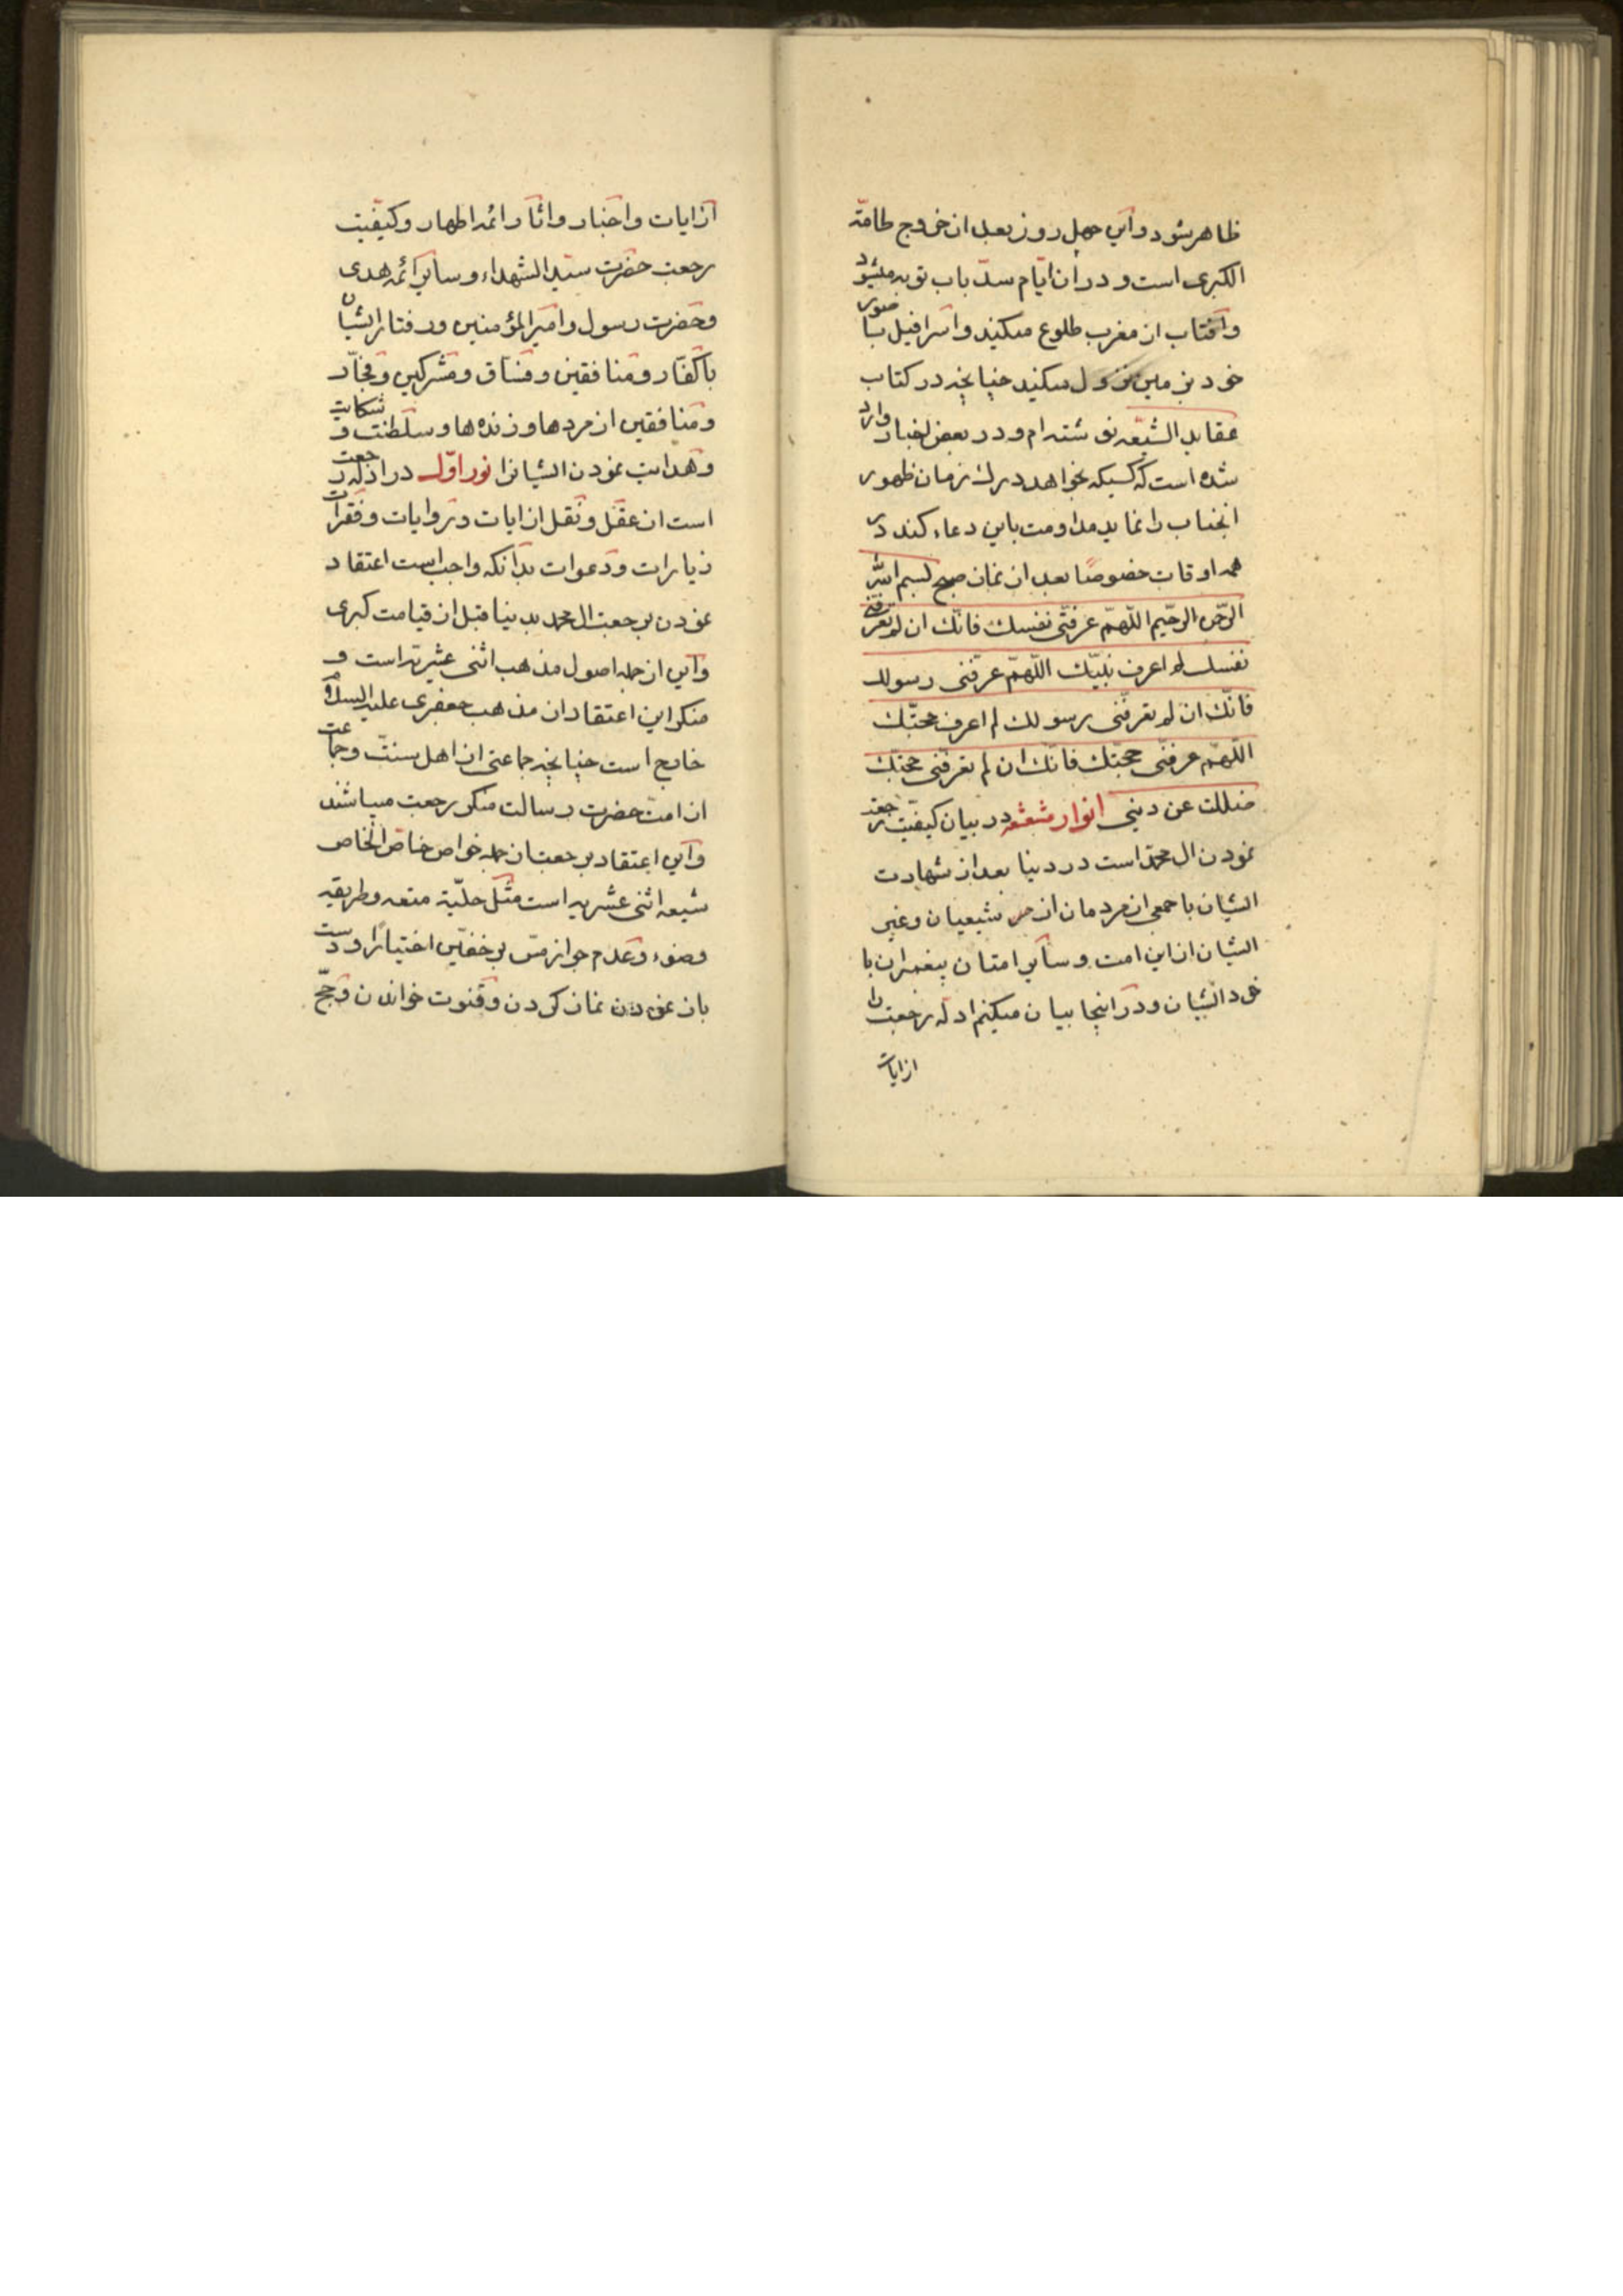 ظاهر شود و این چهل روز بعد از خروج طامة
الکبری است و در ان ایام سد باب توبه میشود
و افتاب از مغرب طلوع میکند و اسرافیل با صور
خود بزمین نزول میکند چنانچه در کتاب
عقاید الشیعه نوشته ام و در بعض اخبار وارد
شده است که کسیکه بخواهد درک زمان ظهور
انجناب را نماید مداومت باین دعاء کند در
همه اوقات خصوصًا بعد از نماز صبح بسم الله
الرحمن الرحیم اللّهمّ عرفنی نفسك فانّك ان لم تعرفنی
نفسك لم اعرف نبیّك اللّهمّ عرّفنی رسولك
فانّك ان لم تعرفنی رسولك لم اعرف حجّتك
اللّهمّ عرفنی حجّتك فانّك ان لم تعرفنی حجتك
ضللت عن دینی انوار مشعشعه در بیان کیفیت رجعة
نمودن ال محمد است در دنیا بعد از شهادت
ایشان با جمعی از مردمان از شیعیان و غیر
ایشان از این امت و سایر امتان پیغمبران با
خود ایشان و در اینجا بیان میکنم ادلّه رجعت را
از ایات
از ایات و اخبار و اثار ائمه اطهار و کیفیت
رجعت حضرت سید الشهداء و سایر ائمه هدی
و حضرت رسول و امیر المؤمنین و رفتار ایشان
با کفّار و منافقین و فسّاق و مشرکین و فجّار
و منافقین از مرده‌ها و زنده‌ها و سلطنت و
و هدایت نمودن ایشانرا نور اوّل در ادله رجعت
است از عقل و نقل از ایات و روایات و فقرات
زیارات و دعوات بدانکه واجب است اعتقاد
نمودن برجعت ال محمد بدنیا قبل از قیامت کبری
و این از جمله اصول مذهب اثنی عشریه است و
منکر این اعتقاد از مذهب جعفری علیه السلام
خارج است چنانچه جماعتی از اهل سنت و جماعت
از امت حضرت رسالت منکر رجعت میباشند
و این اعتقاد برجعت از جمله خواص خاص الخاص
شیعه اثنی عشریه است مثل حلیّة متعه و طریقه
وضوء و عدم جواز مسّ بر خفّین اختیارًا و دست
باز نمودن نماز کردن و قنوت خواندن و حجّ